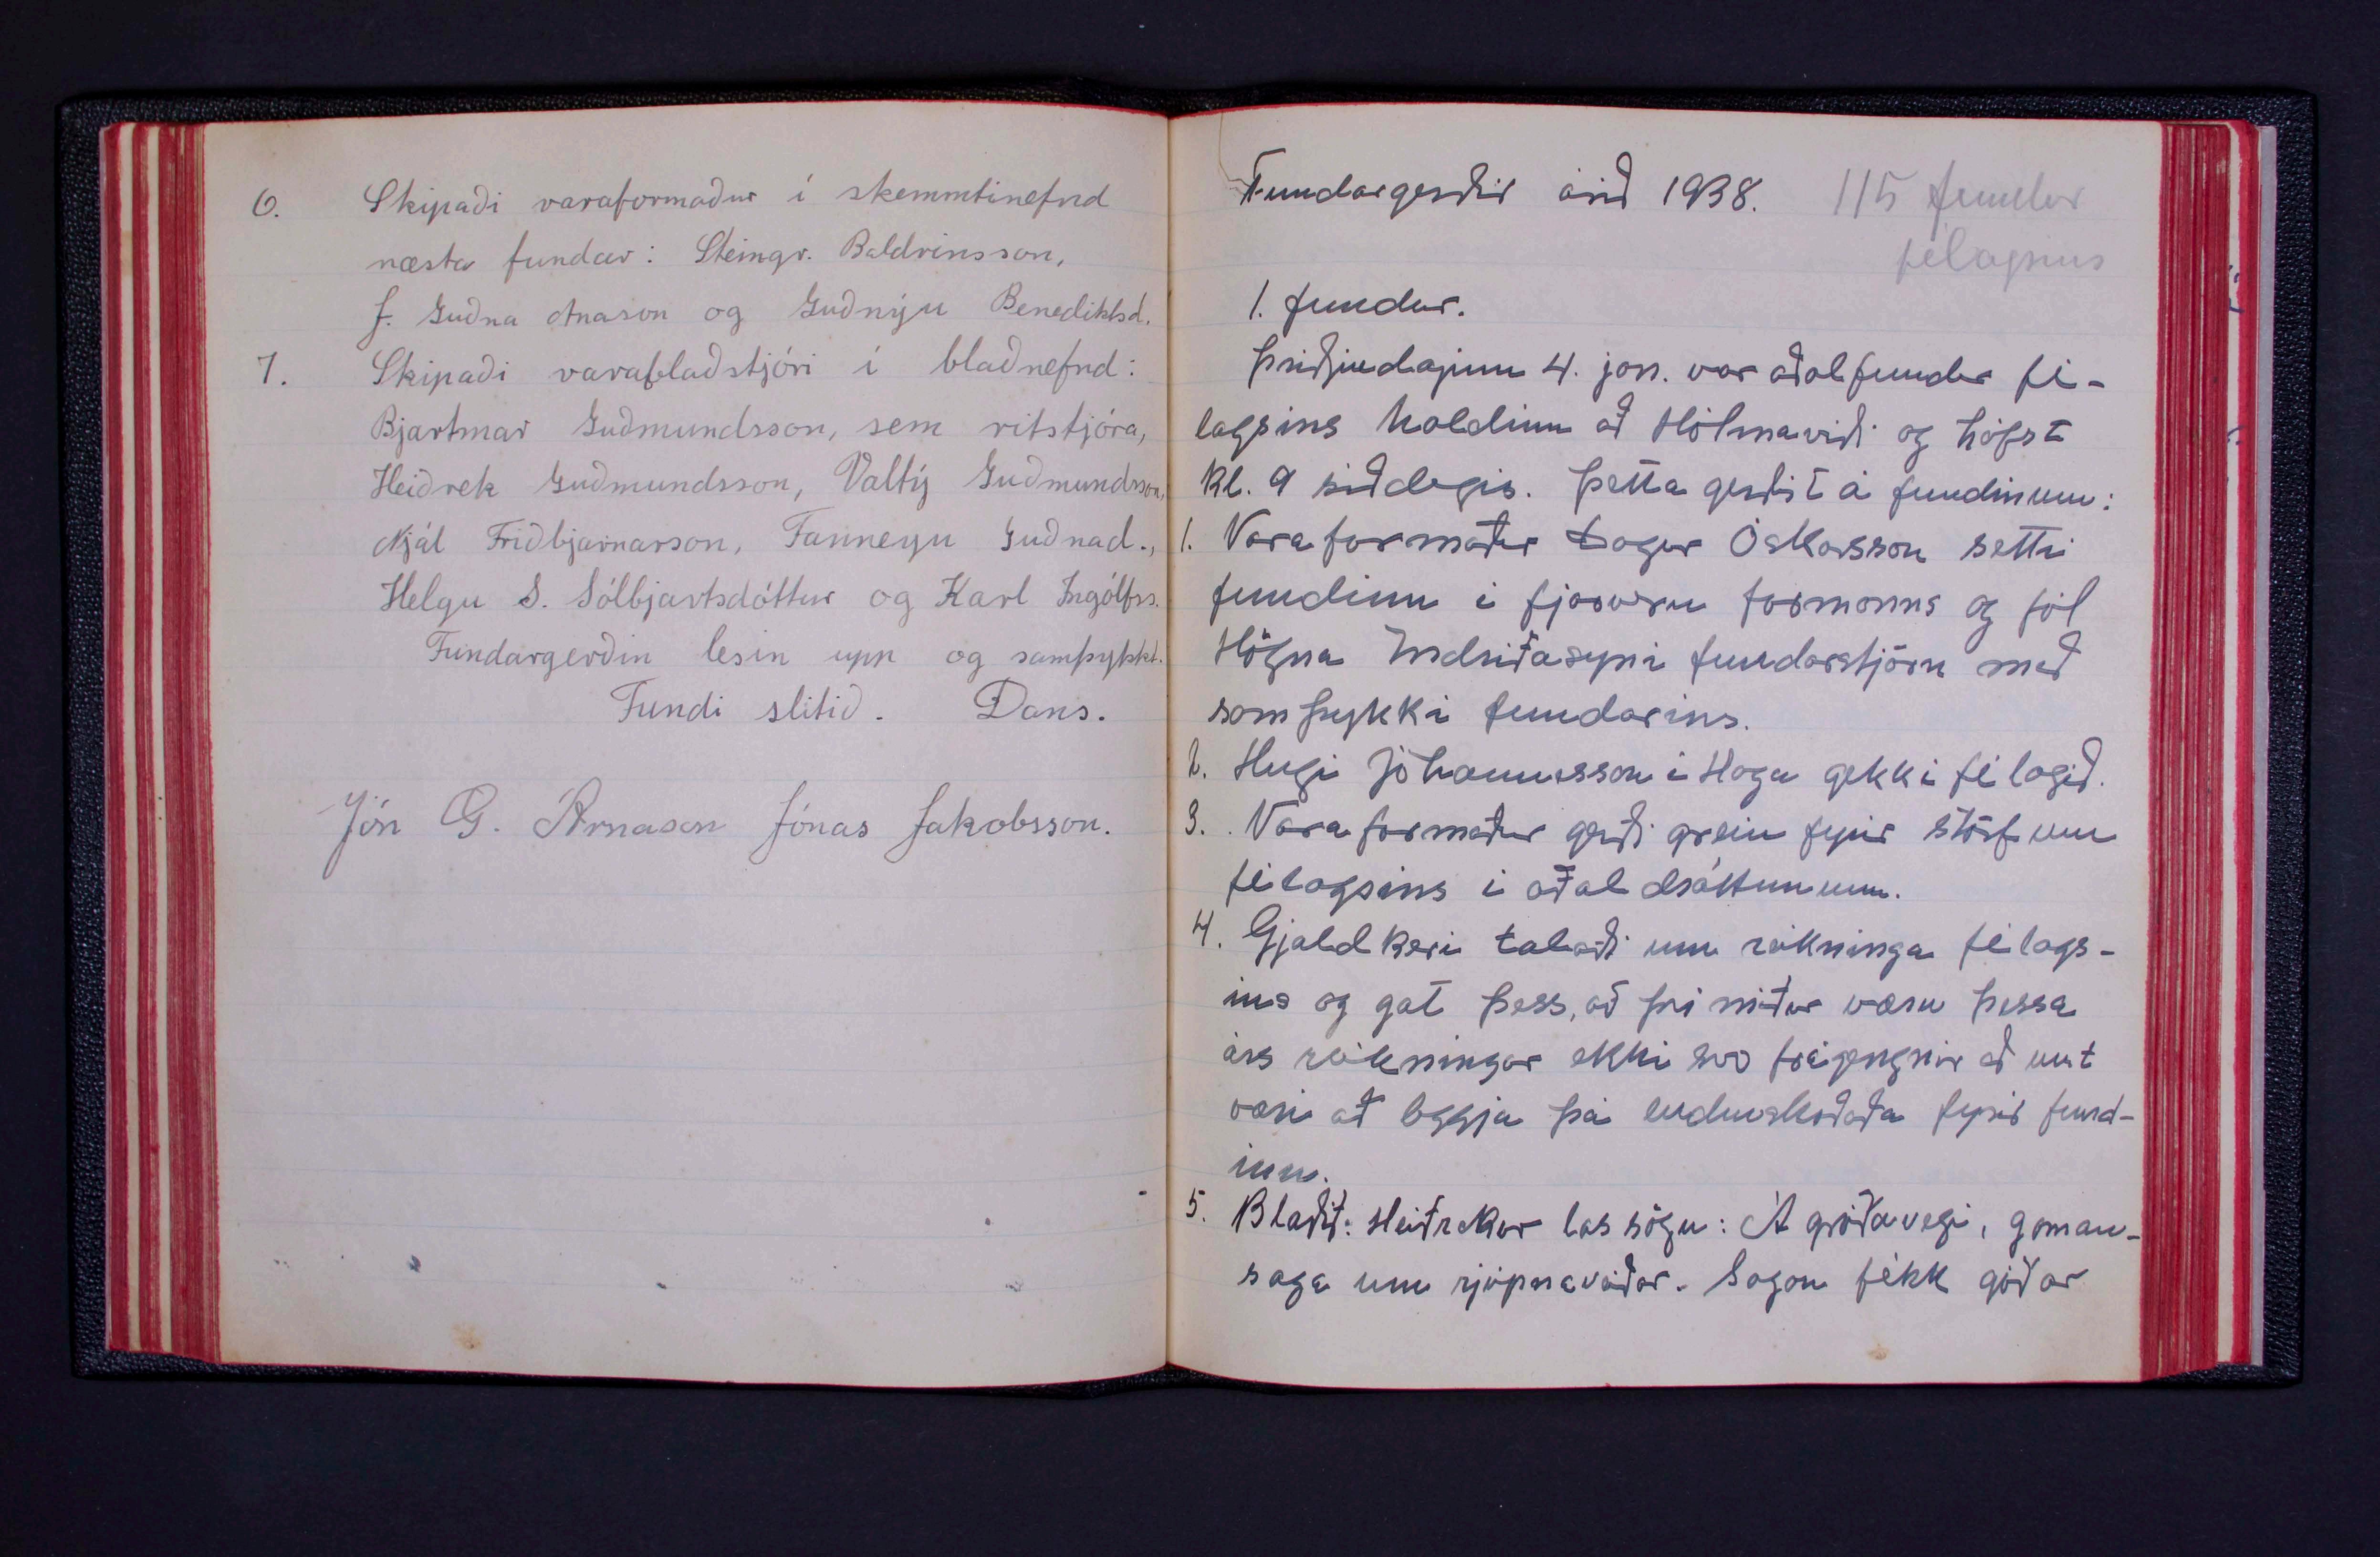 6. Skipaði varaformaður í skemmtinefnd
næsta fundar: Steingr. Baldvinsson,
J. Guðna Anason og Guðnýju Benediktsd.
7. Skipaði varablaðstjóri í blaðnefnd:
Bjartmar Guðmundsson, sem ritstjóra,
Heiðrek Guðmundsson, Valtý Guðmundsson,
Njál Friðbjarnarson, Fanneyu Guðnad.,
Helgu S. Sólbjartsdóttur og Karl Ingólfss.
Fundargerðin lesin upp og samþykkt.
Fundi slitið. Dans.
Jón G. Árnason Jónas Jakobsson.
Fundargerðir árið 1938. 115 fundur
félagsins
1. fundur.
Þriðjudaginn 4. jan. var aðalfundur fé-
lagsins haldinn að Hólmavaði og hófst
kl. 9 síðdegis. Þetta gerðist á fundinum:
1. Varaformaður Dagur Óskarsson setti
fundinn í fjarveru formanns og fól
Högna Indriðasyni fundarstjórn með
samþykki fundarins.
2. Hugi Jóhannesson í Haga gekk í félagið.
3. Varaformaður gerði grein fyrir störfum
félagsins í aðaldráttunum.
4. Gjaldkeri talaði um reikninga félags-
ins og gat þess, að því miður væru þessa
árs reikningar ekki svo frágengnir að unt
væri að leggja þá endurskoðaða fyrir fund-
inn.
5. Blaðið: Heiðrekur las sögu: Á gróðavegi, gaman-
saga um rjúpnaveiðar. Sagan fékk góðar